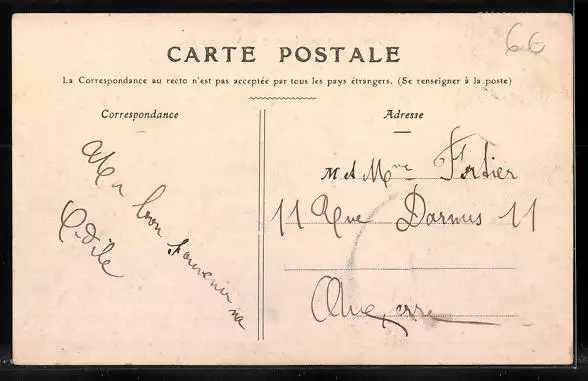 6€
CARTE POSTALE
La Correspondance au recto n'est pas acceptée par tous les pays étrangers. (Se renseigner à la poste)
Correspondance
Adresse
Un bon souvenir
Odile
M et Mme Fortier
11 Rue Darnus 11
Auxerre